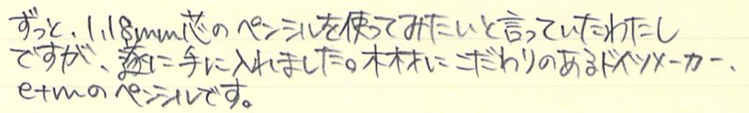 ずっと、1.18mm芯のペンシルを使ってみたいと言っていたわたし
ですが、遂に手に入れました。木材にこだわりのあるドイツメーカー、
e+mのペンシルです。